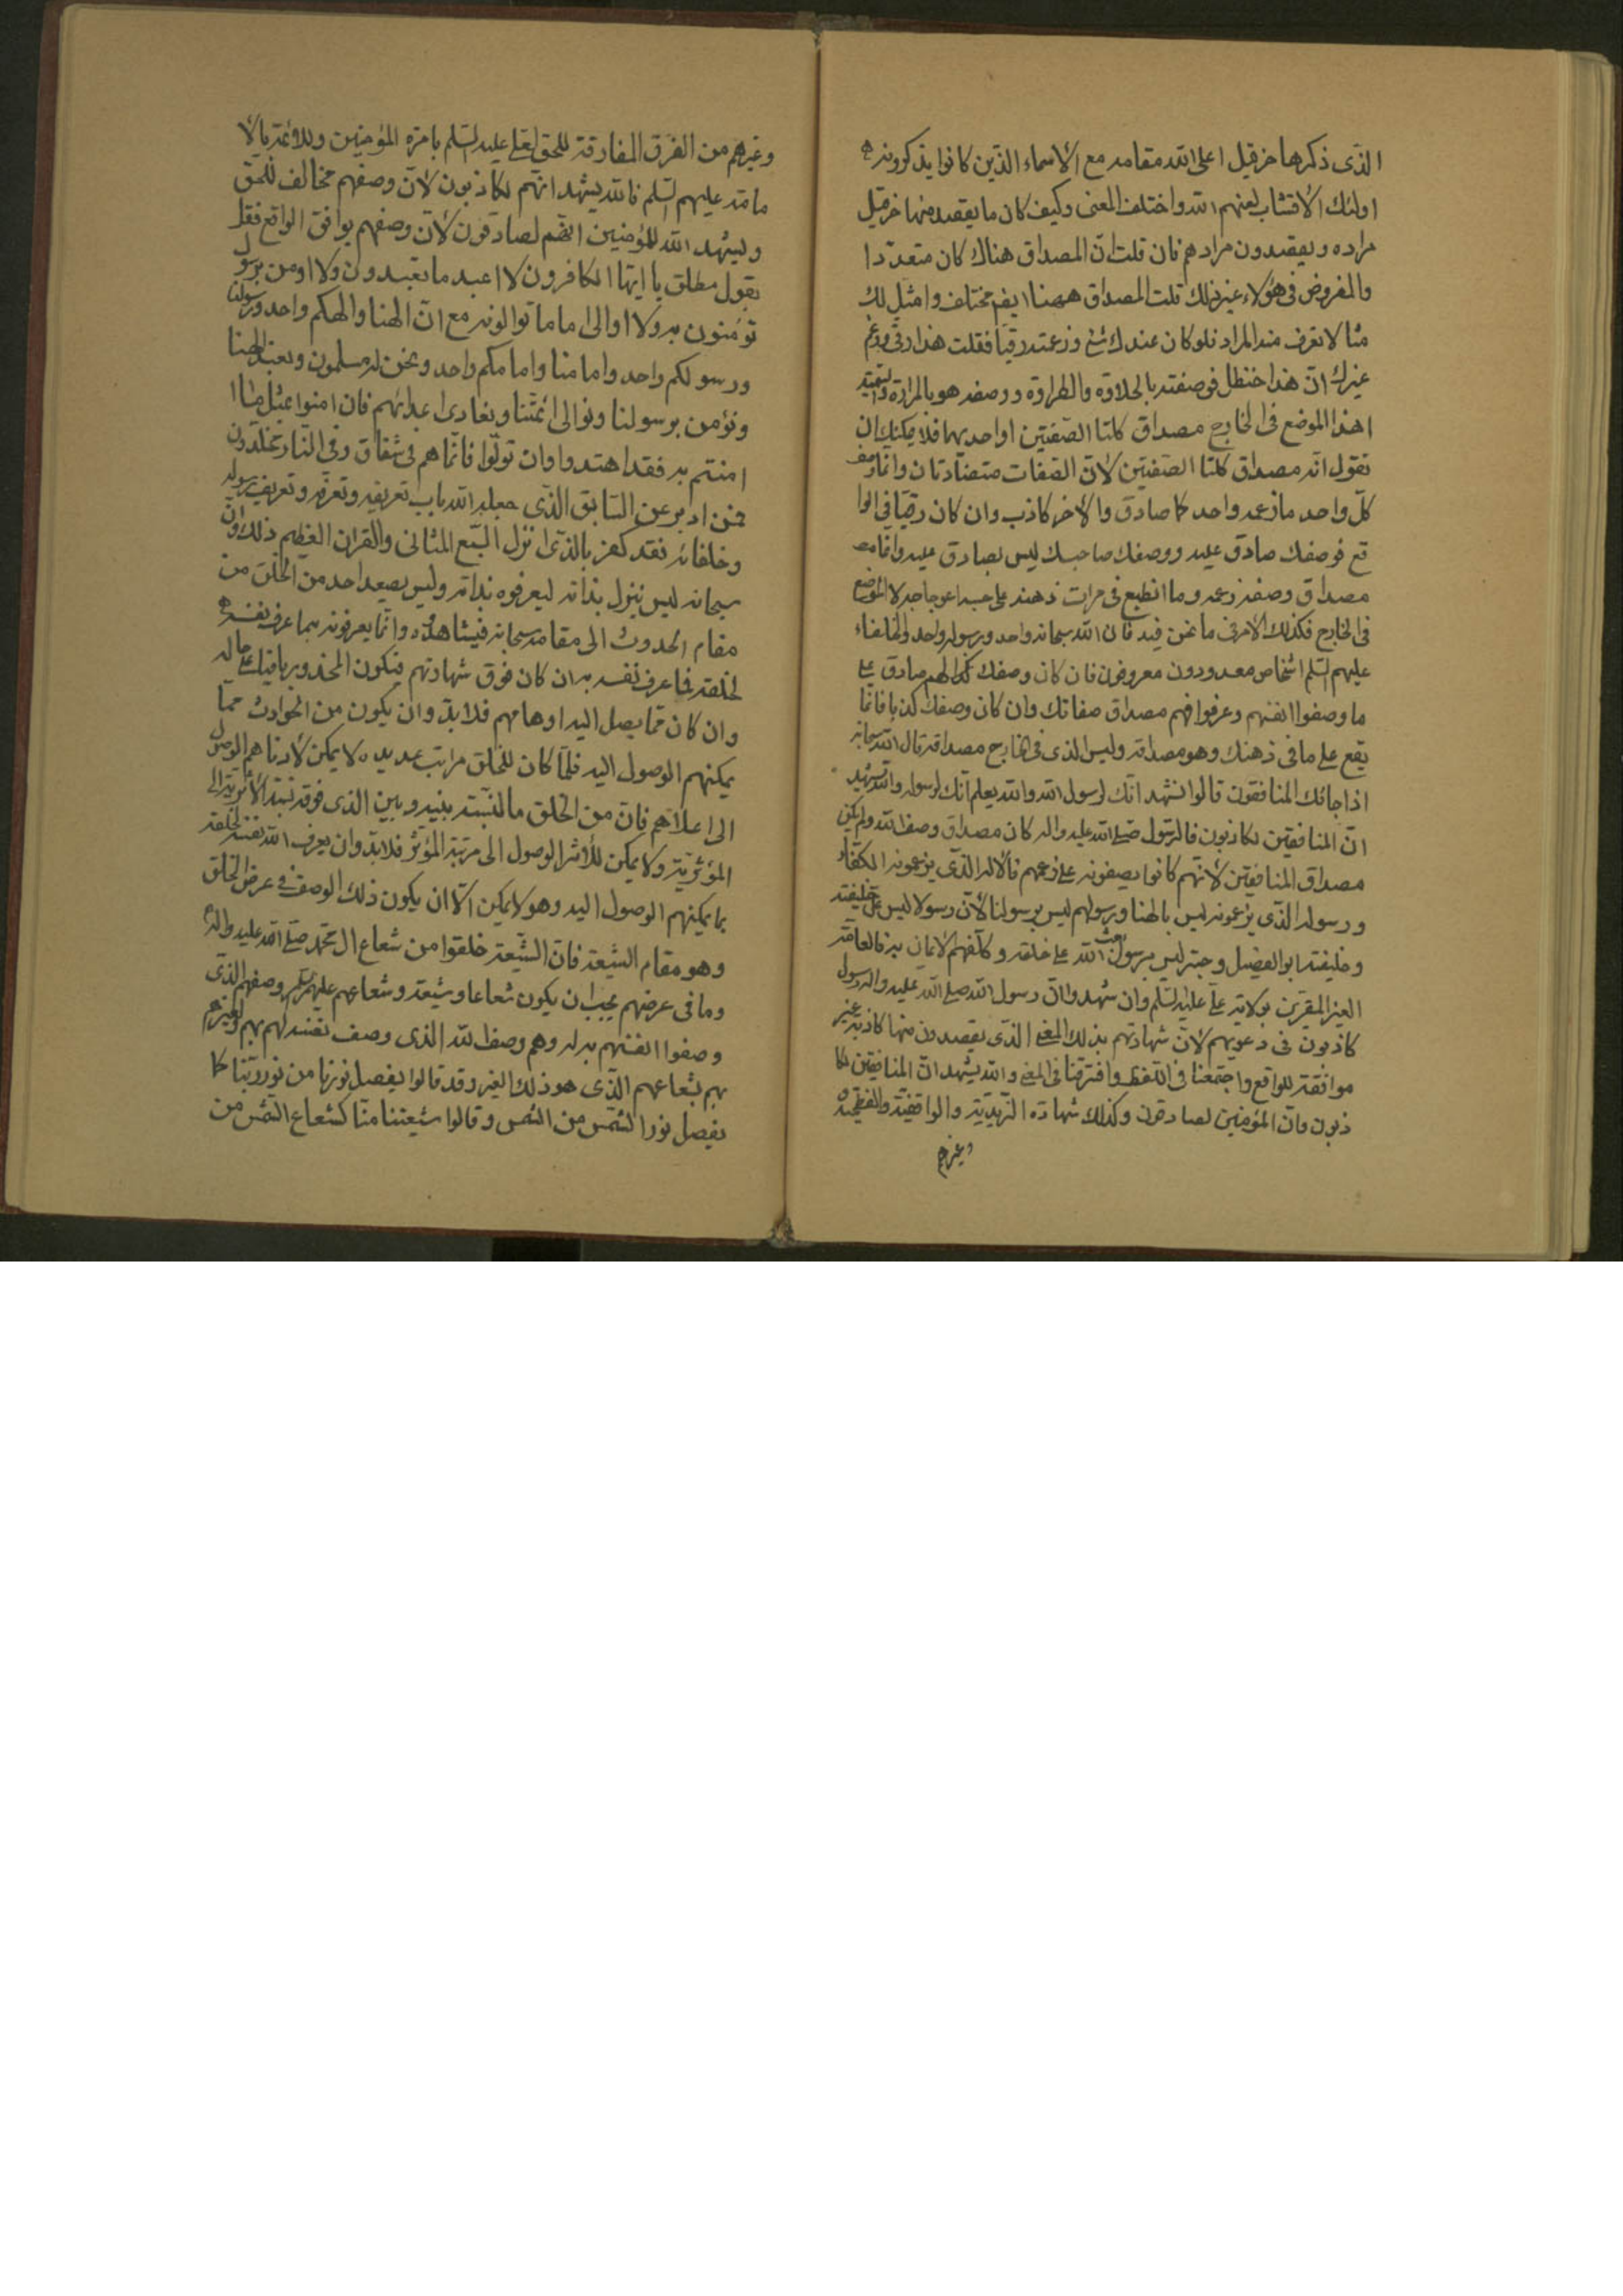 الذی ذكرها حزقيل اعلی الله مقامه مع الاسماء الذين كانوا يذكرونه
اولئك الاقشاب لعنهم الله واختلف المعنی وكيف كان ما يقصد منها حزقيل
مراده ويقصدون مرادهم فان قلت انّ المصداق هناك كان متعدّدا
والمفروض فی هؤلاء غير ذلك قلت المصداق ههنا ايضا مختلف وامثل لك
مثالا تعرف منه المراد فلو كان عندك شیء وزعمته رقيا فقلت هذا رقی وزعم
غيرك انّ هذا حنظل فوصفته بالحلاوة والطراوة ووصفه هو بالمرارة
اهذا الموضع فی الخارج مصداق كلتا الصّفتين او احديهما فلا يمكنك ان
تقول انّه مصداق كلتا الصفتين لانّ الصّفات متضادّتان وانّما وصف
كلّ واحد ما زعمه واحدكما صادق والاخر كاذب وان كان رقيا فی الوا
قع فوصفك صادق عليه ووصف صاحبك ليس بصادق عليه وانما
مصداق وصفه زعمه وما انطبع فی مرات ذهنه علی حسب اعوجاجه لا الموضع
فی الخارج فكذلك الامر فی ما نحن فيه فان الله سبحانه واحد ورسوله واحد والخلفاء
عليهم السّلم اشخاص معدودون معروفون فان كان وصفك لهم صادق علی
ما وصفوا انفسهم وعرفوا فهم مصداق صفاتك وان كان وصفك كذبا فانما
يقع علی ما فی ذهنك وهو مصداقه وليس الذی فی الخارج مصداقه قال الله سبحانه
اذا جائك المنافقون قالوا نشهد انّك لرسول الله والله يعلم انّك لرسوله والله يشهد
انّ المنافقين لكاذبون فالرّسول صلّی الله عليه واله كان مصداق وصف الله ولم يكن
مصداق المنافقين لانّهم كانوا يصفونه علی زعمهم فالاله الذّی يزعمونه الكفّار
ورسوله الذّی يزعمونه ليس بالهنا ورسولهم ليس برسولنا لانّ رسولا ليس علیّ خليفته
وخليفته ابو الفصيل وحبتر ليس برسول بعث الله علی خلقه وكلّفهم الايمان به فالعامّة
الغير المقرّين بولاية علیّ عليه السّلم وان شهدوا انّ رسول الله صلی الله عليه واله رسول
كاذبون فی دعويهم لانّ شهادتهم بذلك المعنی الذّی يقصدون منها كاذبة غير
موافقة للواقع واجتمعنا فی اللّفظ وافترقنا فی المعنی والله يشهد انّ المنافقين لكا
ذبون وانّ المؤمنين لصادقون وكذلك شهادة الزّيديّة والواقفيّة والفطحيّة
وغيرهم
وغيرهم من الفرق المفارقة للحق لعلی عليه السّلم بامرة المؤمنين وللائمة بالا
مامة عليهم السّلم فالله يشهد انّهم لكاذبون لانّ وصفهم مخالف للحق
ويشهد الله للمؤمنين انّهم لصادقون لانّ وصفهم يوافق الواقع فقل
بقول مطلق يا ايّها الكافرون لا اعبد ما تعبدون ولا اومن برسول
تؤمنون به ولا اوالی اماما توالونه مع انّ الهنا والهكم واحد ورسولنا
ورسولكم واحد وامامنا وامامكم واحد ونحن له مسلمون ونعبد الهنا
ونؤمن برسولنا ونوالی ائمّتنا ونعادی اعدائهم فان امنوا بمثل ما
امنتم به فقد اهتدوا وان تولّوا فانّما هم فی شقاق وفی النّار مخلّدون
فمن ادبر عن السّابق الذّی جعله الله باب تعريفه وتعرّفه وتعريف رسوله
وخلفائه فقد كفر بالذّی انزل السّبع المثانی والقران العظيم ذلك وانّ
سبحانه ليس ينزل بذاته ليعرفوه بذاته وليس يصعد احد من الخلق من
مقام الحدوث الی مقامه سبحانه فيشاهدوه وانّما يعرفونه بما عرف نفسه
لخلقه فما عرف نفسه به ان كان فوق شهادتهم فيكون المحذور باقيا علی حاله
وان كان ممّا يصل اليه اوهامهم فلا بدّ وان يكون من الحوادث ممّا
يمكنهم الوصول اليه فلمّا كان للخلق مراتب عديده لا يمكن لادناهم الوصول
الی اعلاهم فانّ من الخلق ما النّسبة بينه وبين الذی فوقه نسبة الاثرية الی
المؤثّريّة ولا يمكن للأثر الوصول الی مرتبة المؤثّر فلا بدّ وان يعرف الله نفسه لخلقه
بما يمكنهم الوصول اليه وهو لا يمكن الّا ان يكون ذلك الوصف فی عرض الخلق
وهو مقام الشّيعة فانّ الشّيعة خلقوا من شعاع ال محمّد صلّی الله عليه واله
وما فی عرضهم يجب ان يكون شعاعا وشيعة وشعاعهم عليهم السّلم وصفهم الذّی
وصفوا انفسهم به له وهم وصف الله الذی وصف نفسه لهم بهم ولغيرهم
بهم بشعاعهم الذّی هو ذلك الغير وقد قالوا يفصل نورنا من نور ربّنا كما
يفصل نور الشّمس من الشّمس وقالوا شيعتنا منّا كشعاع الشّمس من